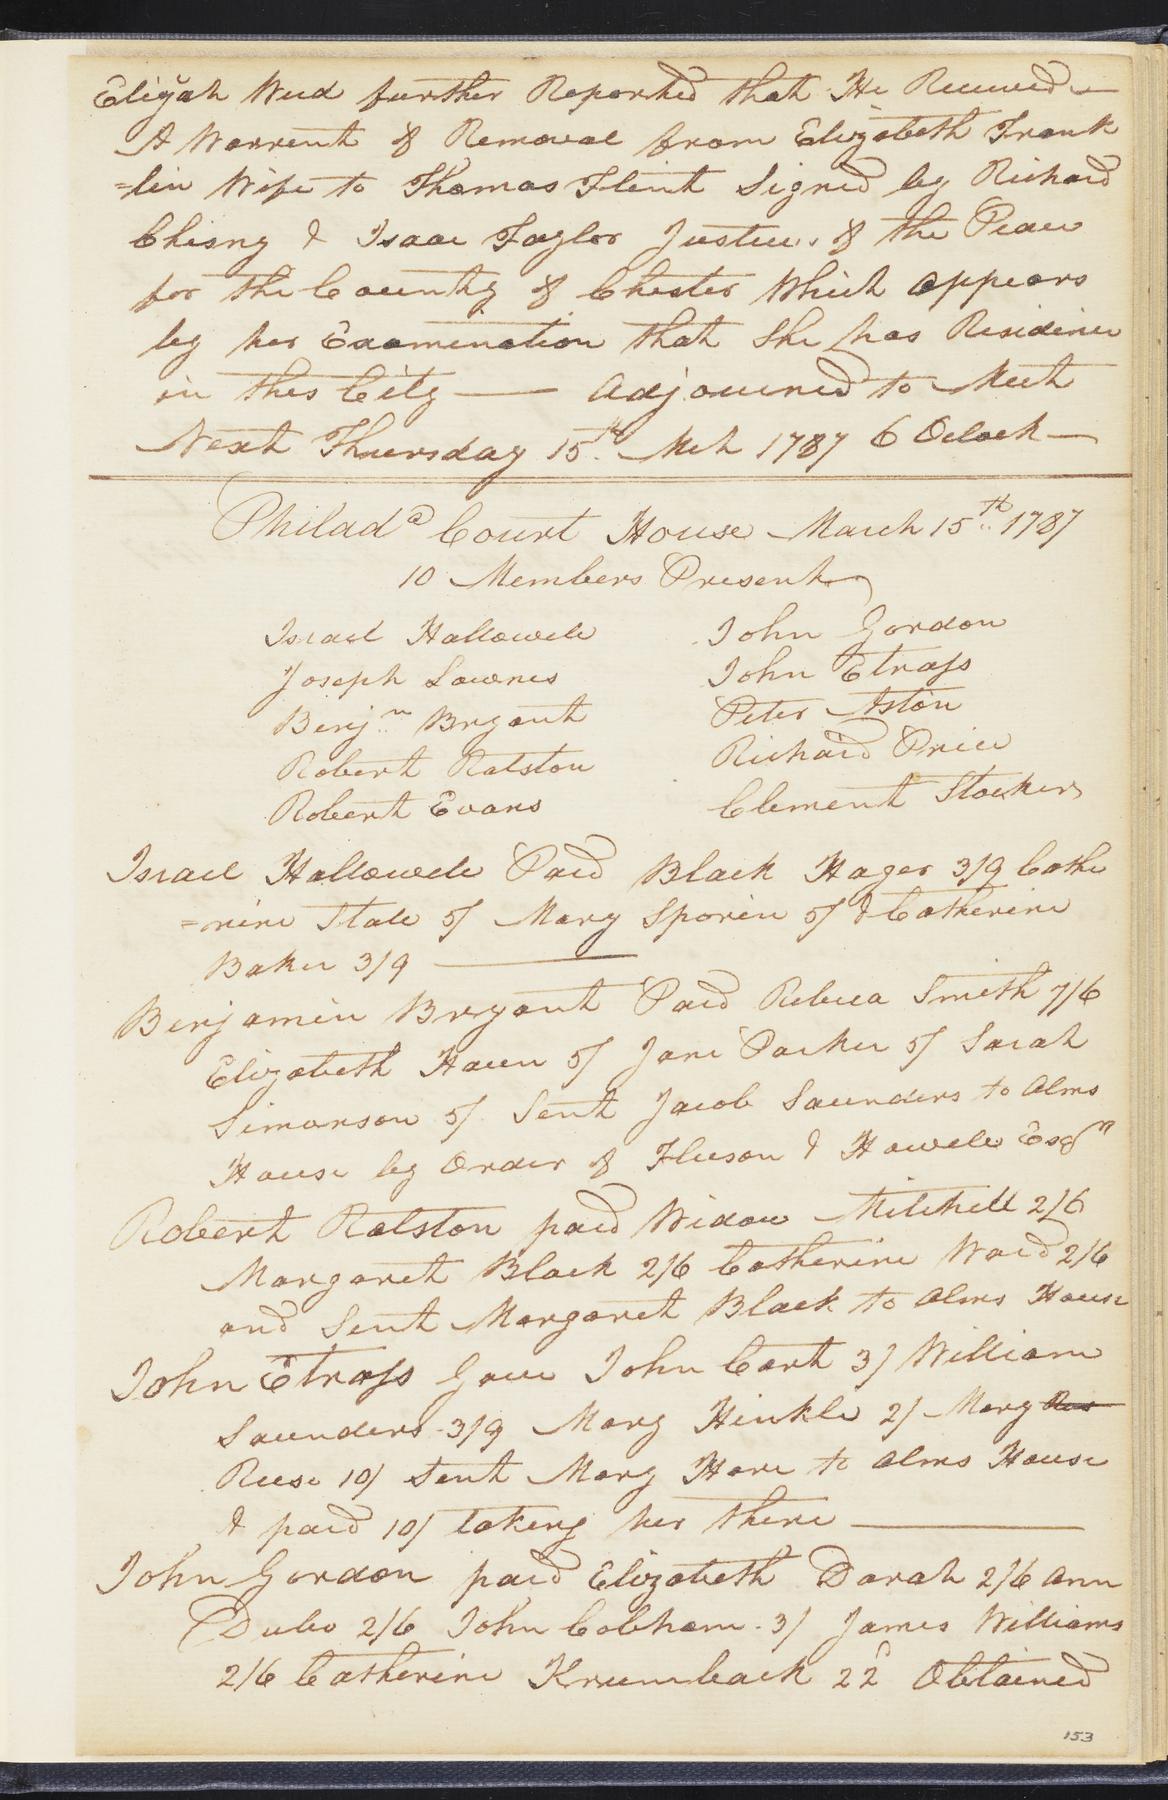 Elijah Weed further Reported that He Received
A Warrent of Removal from Elizabeth Frank
=lin Wife to Thomas Flint Signed by Richard
Chisny & Isaac Taylor Justices of the Peace
for the County of Chester Which appears
by her Examenation that She has Residence
in thes City — Adjourned to Meet
Next Thursday 15th Mch 1787 6 OClock —
Philada Court House March 15th 1787
10 Members Present
Israel Hallowell John Gordon
Joseph Lownes John Strass
Benjn Bryant Peter Aston
Robert Ralston Richard Price
Robert Evans Clement Stocker
Israel Hallowell Paid Black Hager 3/9 Cathe
=rine State 5/ Mary Sporin 5/ & Catherine
Baker 3/9 —
Benjamin Bryant Paid Rebeca Smith 7/6
Elizabeth Haun 5/ Jane Parker 5/ Sarah
Simonson 5/ Sent Jacob Saunders to Alms
House by Order of Fleeson & Howell Esqrs
Robert Ralston paid Widow Mitchell 2/6
Margaret Black 2/6 Catherine Ward 2/6
and Sent Margaret Black to Alms House
John Strass Gave John Cart 3/ William
Saunders 3/9 Mary Hinkle 2/ Mary Res
Reese 10/ Sent Mary Hare to Alms House
& paid 10/ takeng her there —
John Gordon paid Elizabeth Darah 2/6 Ann
Dubo 2/6 John Cobham 3/ James Williams
2/6 Catherine Krumback 22d Obtained
153